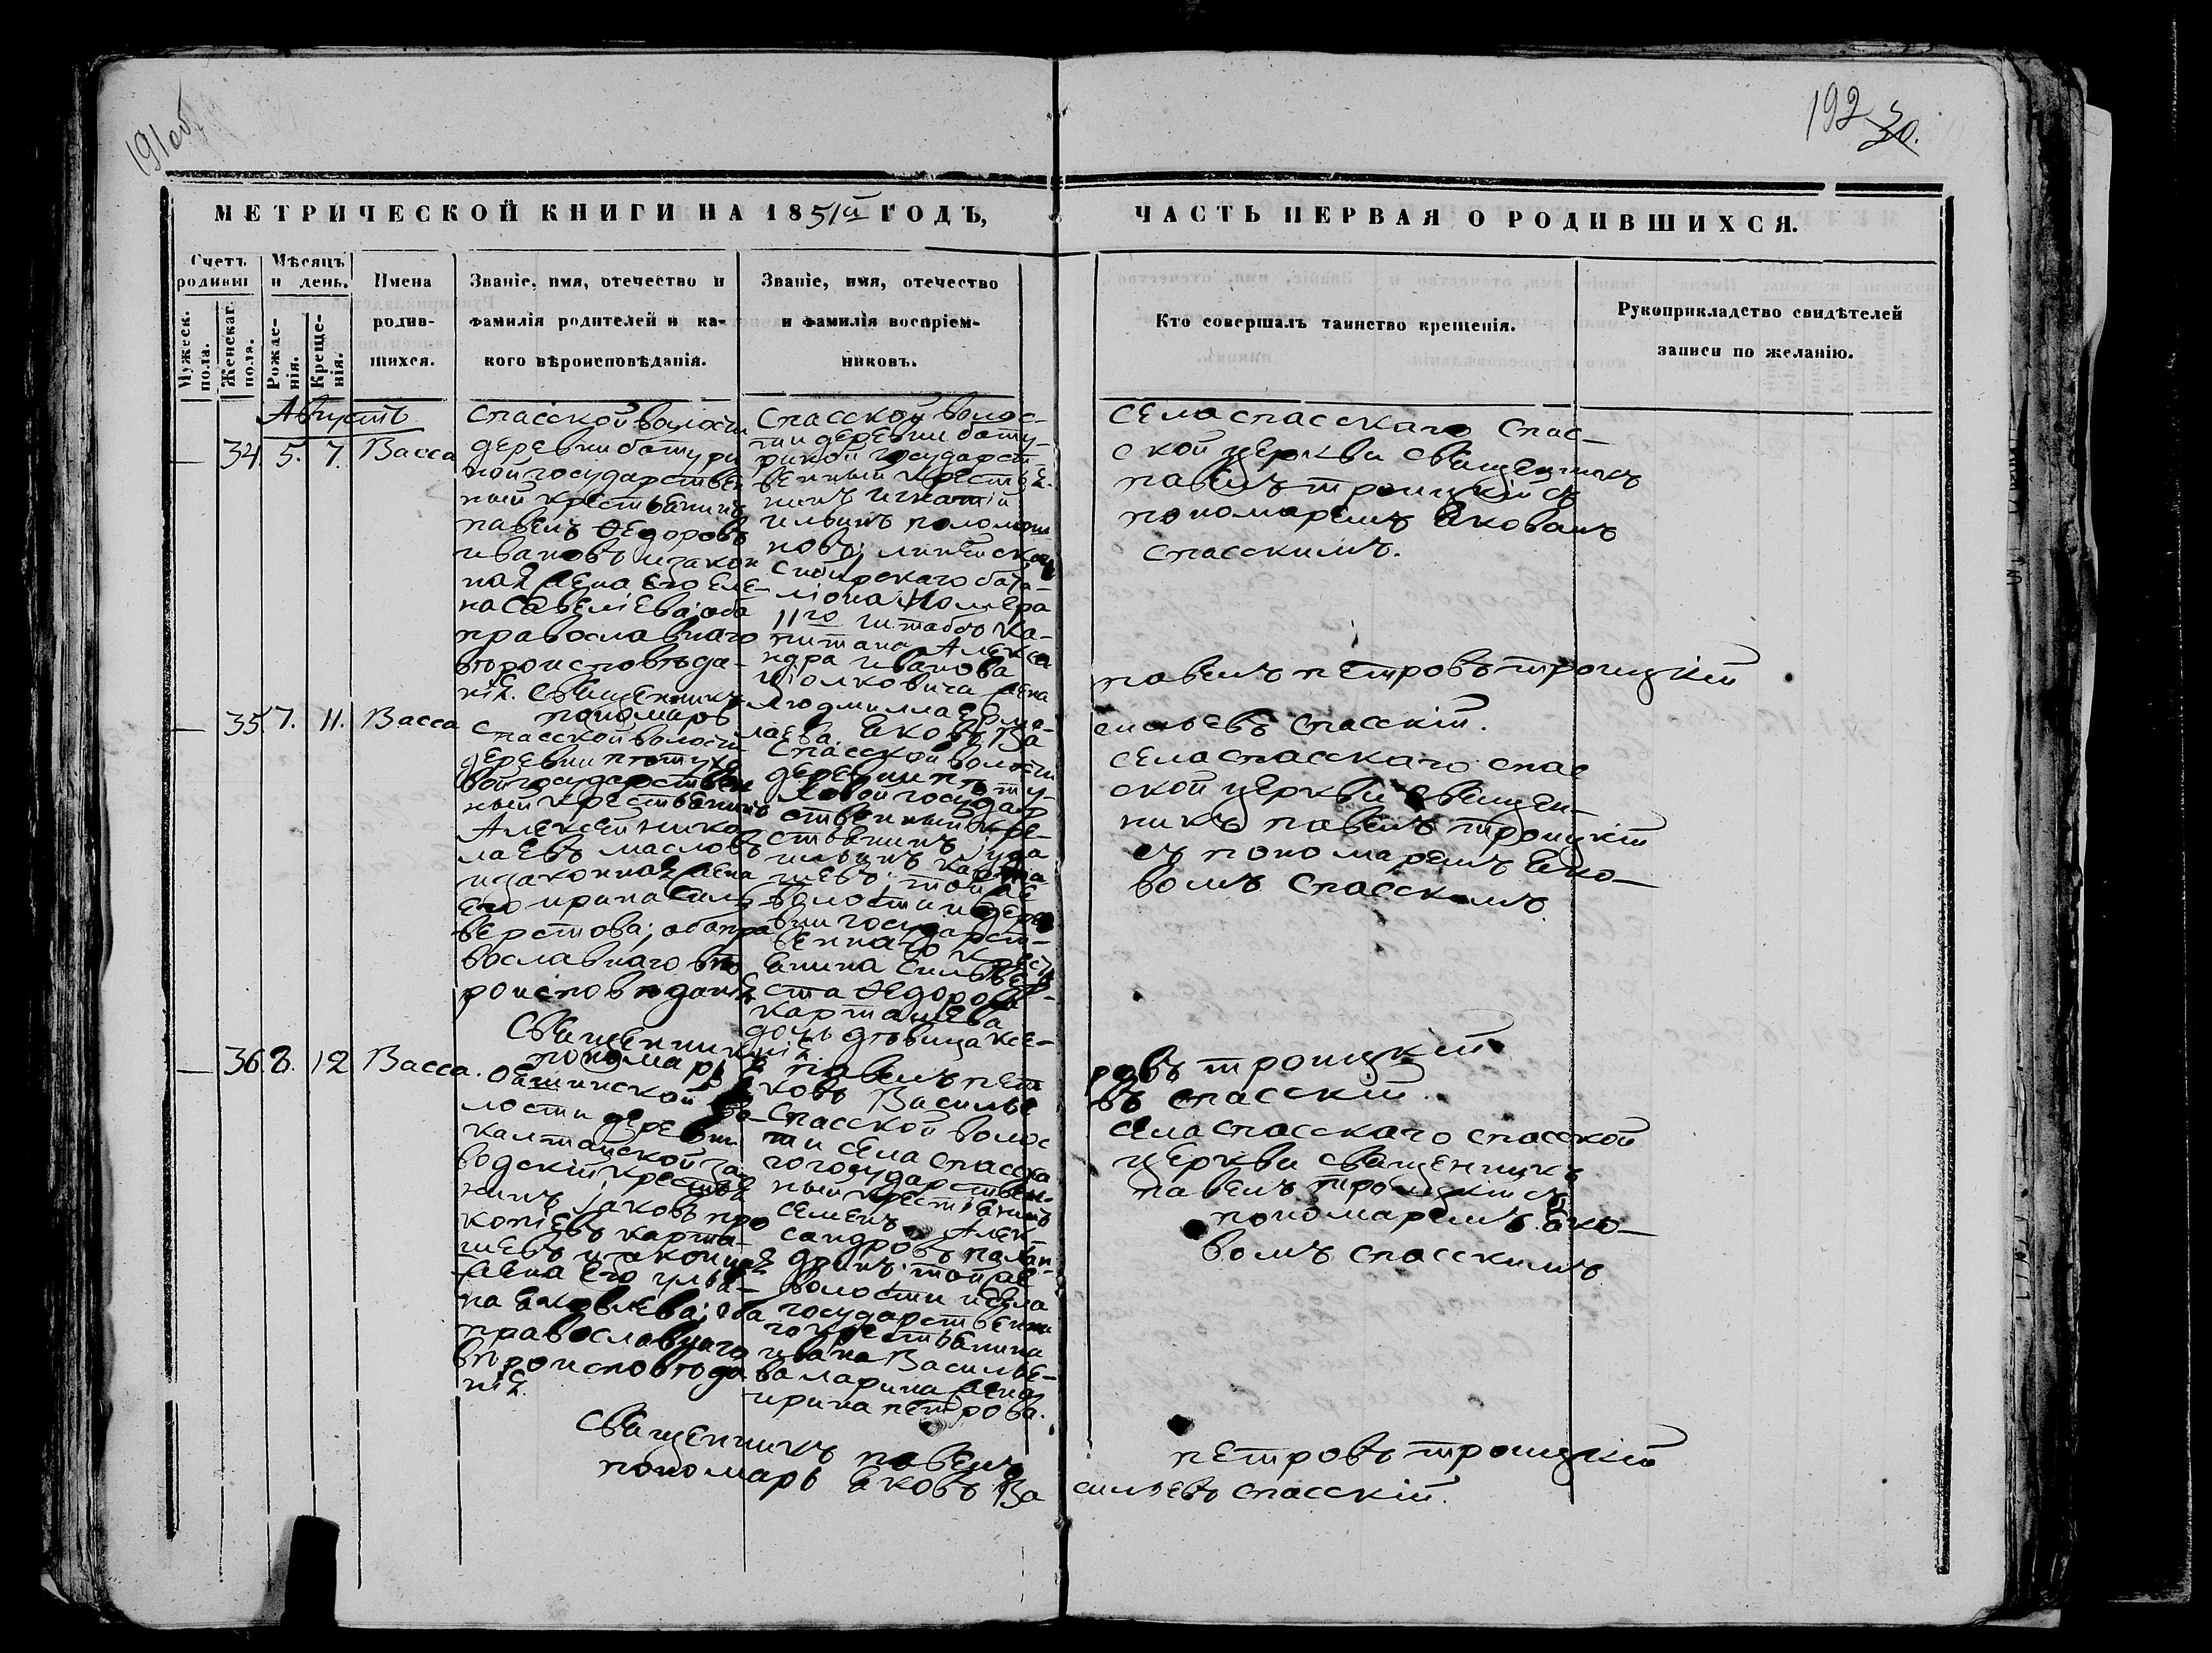 191об
192
30.
МЕТРИЧЕСКОЙ КНИГИ НА 1851й ГОДЪ,
ЧАСТЬ ПЕРВАЯ О РОДИВШИХСЯ.
Счетъ родивш
Мужеск. пола.
Женскаг. пола.
Мѣсяцъ и день.
Рожде-
нія.
Креще-
нія.
Имена
родив-
шихся.
Званіе, имя, отечество и
фамилія родителей и ка-
кого вѣроисповѣданія.
Званіе, имя, отечество
и фамилія воспріем-
никовъ.
Кто совершалъ таинство крещенія.
Рукоприкладство свидѣтелей
записи по желанію.
Августъ
34. 5. 7. Васса
Спасской волости
деревни батури
ной государствен
ный крестьянинъ
павелъ Ѳедоровъ
ивановъ и закон
ная жена его Еле-
на Савельева; оба
православнаго
вѣроисповѣда-
нія.
Спасской волос-
ти деревни бату-
риной государст
венный крестья
нинъ игнатій
ильинъ
сибирскаго бата
ліона Номера
11го штабсъ ка-
питана Алекса
ндра иванова
жена
Людмилла
села спасскаго Спас-
ской церкви священникъ
павелъ троицкій съ
пономаремъ Яковомъ
спасскимъ.
Священникъ павелъ петровъ троицкій
пономарь Яковъ Ва сильевъ спасскій.
35. 7. 11. Васса
Спасской волости
деревни петухо
вой государствен
ный крестьянинъ
Алексей Нико
лаевъ масловъ
и законная жена
его ирина Силь
верстова; оба пра
вославнаго вѣ
роисповѣданія
Спасской волости
деревни пету-
ховой государ
ственный кре-
стьянинъ іуда
ильинъ карта
шевъ; той же
волости и дерев
ни государст-
веннаго крест
янина Сильвер
ста Ѳедорова
карташева
дочь дѣвица ксе-
нія.
села спасскаго спас
ской церкви священ-
никъ павелъ троицкій
съ пономаремъ Яко-
вомъ спасскимъ.
Священникъ павелъ пет ровъ троицкій
пономарь Яковъ Василье въ спасскій.
36. 8. 12 Васса.
лости деревни
калтайской за
водскій крестья
нинъ іаковъ про
копіевъ карта-
шевъ и законная
жена его улья-
на Яковлева; оба
православнаго
вѣроисповѣда
нія.
Спасской волос
ти села спасска
го государствен-
ный крестьянинъ
Семенъ Алек
сандровъ
той же
волости и села
государственна
го крестьянина
ивана Василье-
ва ларина жена
ирина петрова.
села спасскаго спасской
церкви священникъ
павелъ троицкій съ
пономаремъ Яко-
вомъ спасскимъ
Священникъ павелъ петровъ троицкій
пономарь Яковъ Ва сильевъ спасскій.